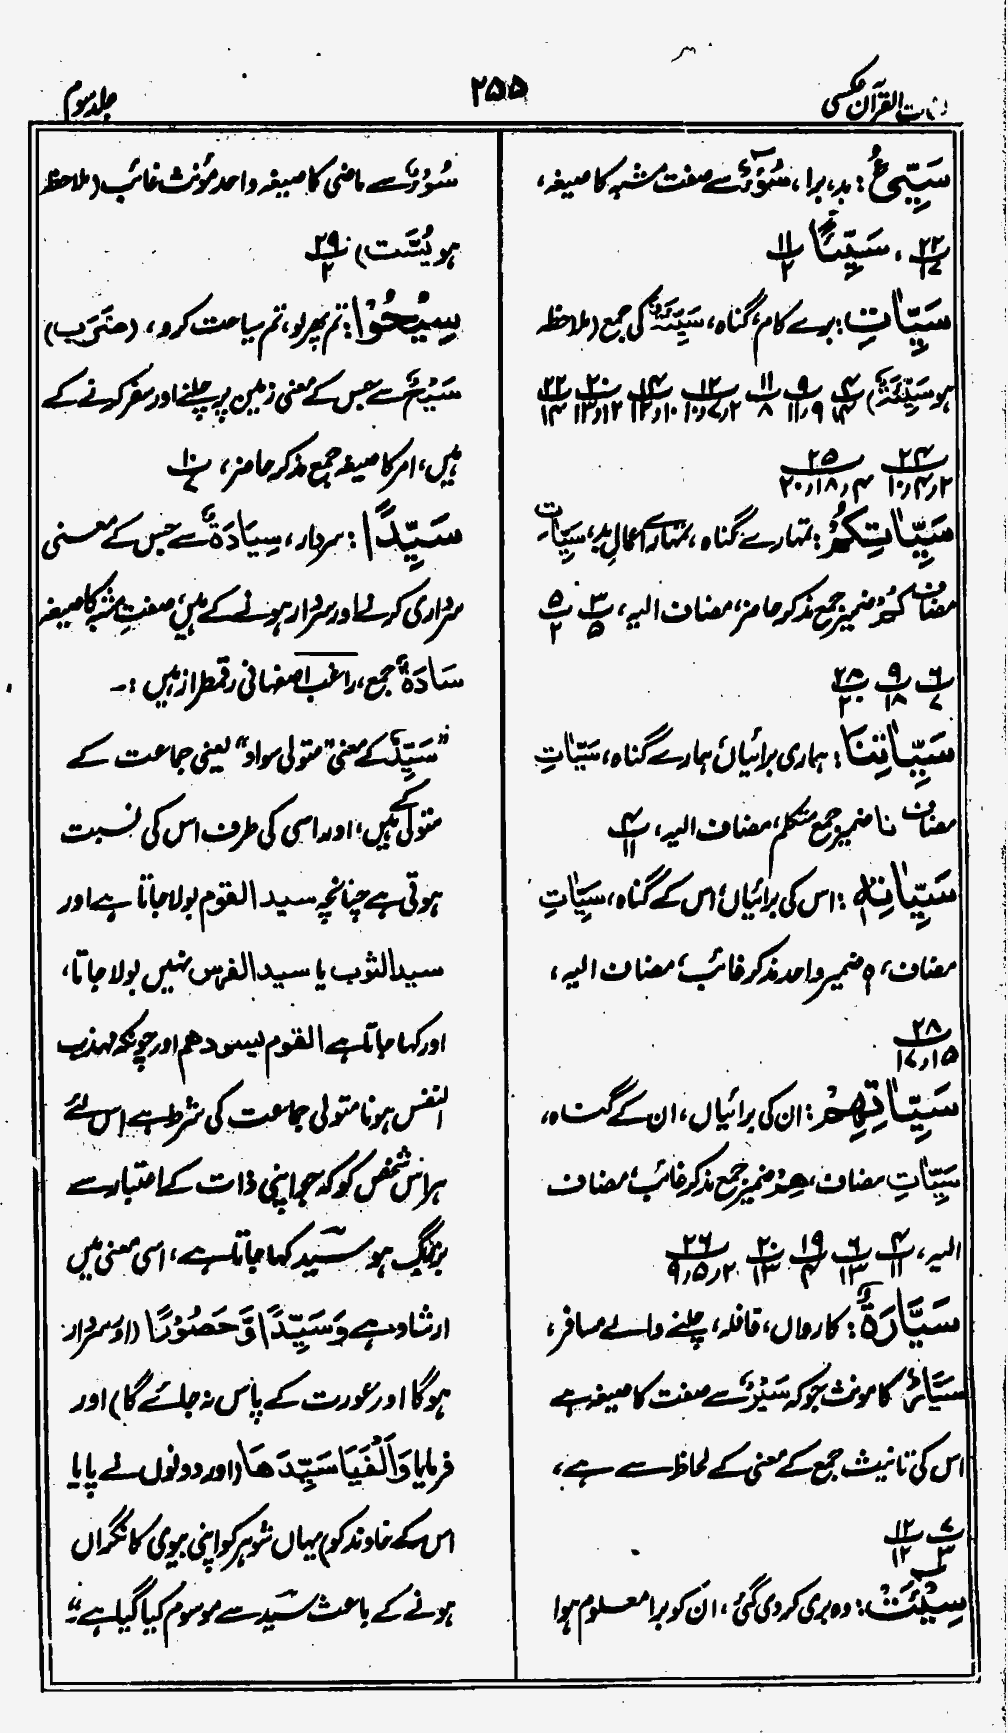 لغات القرآن عکسی
۲۵۵
جلد سوم
سَيِّئٌ : بد، برا، سُوْءٌ سے صفت مشبہ کا صیغہ،
۲۲/۱۷، سَيِّئًا ۱۱/۲
سَيِّاٰتِ : برے کام، گناہ، سَيِّئَةٌ کی جمع (ملاحظہ
ہو سَيِّئَةٌ) ۴/۱۴ ۹/۹،۱۱ ۱۱/۸ ۱۲/۲،۷،۱۰ ۱۴/۱۰،۱۲ ۲۰/۱۲،۱۳ ۲۲/۱۴
۲۴/۲،۴،۱۰ ۲۵/۴،۱۸،۲۰
سَيِّاٰتِكُمْ : تمہارے گناہ، تمہارے اعمال بد، سَيِّاٰتِ
مضاف كُمْ ضمیر جمع مذکر حاضر، مضاف الیہ، ۳/۵ ۵/۲
۶/۷ ۹/۱۸ ۲۸/۲۰
سَيِّاٰتِنَا : ہماری برائیاں ہمارے گناہ، سَيِّاٰتِ
مضاف نا ضمیر جمع متکلم، مضاف الیہ، ۴/۱۱
سَيِّاٰتِهٖ : اس کی برائیاں، اس کے گناہ، سَيِّاٰتِ
مضاف، ہ ضمیر واحد مذکر غائب، مضاف الیہ،
۲۸/۱۵،۱۷
سَيِّاٰتِهِمْ : ان کی برائیاں، ان کے گناہ،
سَيِّاٰتِ مضاف، هِمْ ضمیر جمع مذکر غائب، مضاف
الیہ، ۴/۱۱ ۶/۱۳ ۱۹/۴ ۲۰/۱۳ ۲۶/۲،۵،۹
سَيَّارَةٌ : کارواں، قافلہ، چلنے والے مسافر،
سَيَّارٌ کا مونث جو کہ سَيْرٌ سے صفت کا صیغہ ہے
اس کی تانیث جمع کے معنی کے لحاظ سے ہے،
۷/۳ ۱۲/۱۲
سِيْٓئَتْ : وہ بری کر دی گئی، ان کو برا معلوم ہوا
سُوْءٌ سے ماضی کا صیغہ واحد مؤنث غائب (ملاحظہ
ہو يُسَّت) ۲۹/۲
سِيْحُوْا : تم پھر لو، تم سیاحت کرو، (ضَرَبَ)
سَيْحٌ سے جس کے معنی زمین پر چلنے اور سفر کرنے کے
ہیں، امر کا صیغہ جمع مذکر حاضر، ۱۰/۷
سَيِّدًا : سردار، سِيَادَةٌ سے جس کے معنی
سرداری کرنے اور سردار ہونے کے ہیں، صفتِ مشبہ کا صیغہ
سَادَةٌ جمع، راغب اصفہانی رقمطراز ہیں :۔
”سَيِّدٌ کے معنی ”متولی سواد“ یعنی جماعت کے
متولی کے ہیں، اور اسی کی طرف اس کی نسبت
ہوتی ہے چنانچہ سید القوم بولا جاتا ہے اور
سید الثوب یا سید الفرس نہیں بولا جاتا،
اور کہا جاتا ہے القوم یسودهم اور چونکہ مہذب
النفس ہونا متولی جماعت کی شرط ہے اس لئے
ہر اس شخص کو کہ جو اپنی ذات کے اعتبار سے
بزرگ ہو سید کہا جاتا ہے، اسی معنی میں
ارشاد ہے وَسَيِّدًا وَّحَصُوْرًا (اور سردار
ہوگا اور عورت کے پاس نہ جائے گا) اور
فرمایا وَاَلْفَيَا سَيِّدَهَا (اور دونوں نے پایا
اس کے خاوند کو) یہاں شوہر کو اپنی بیوی کا نگراں
ہونے کے باعث سید سے موسوم کیا گیا ہے“۔